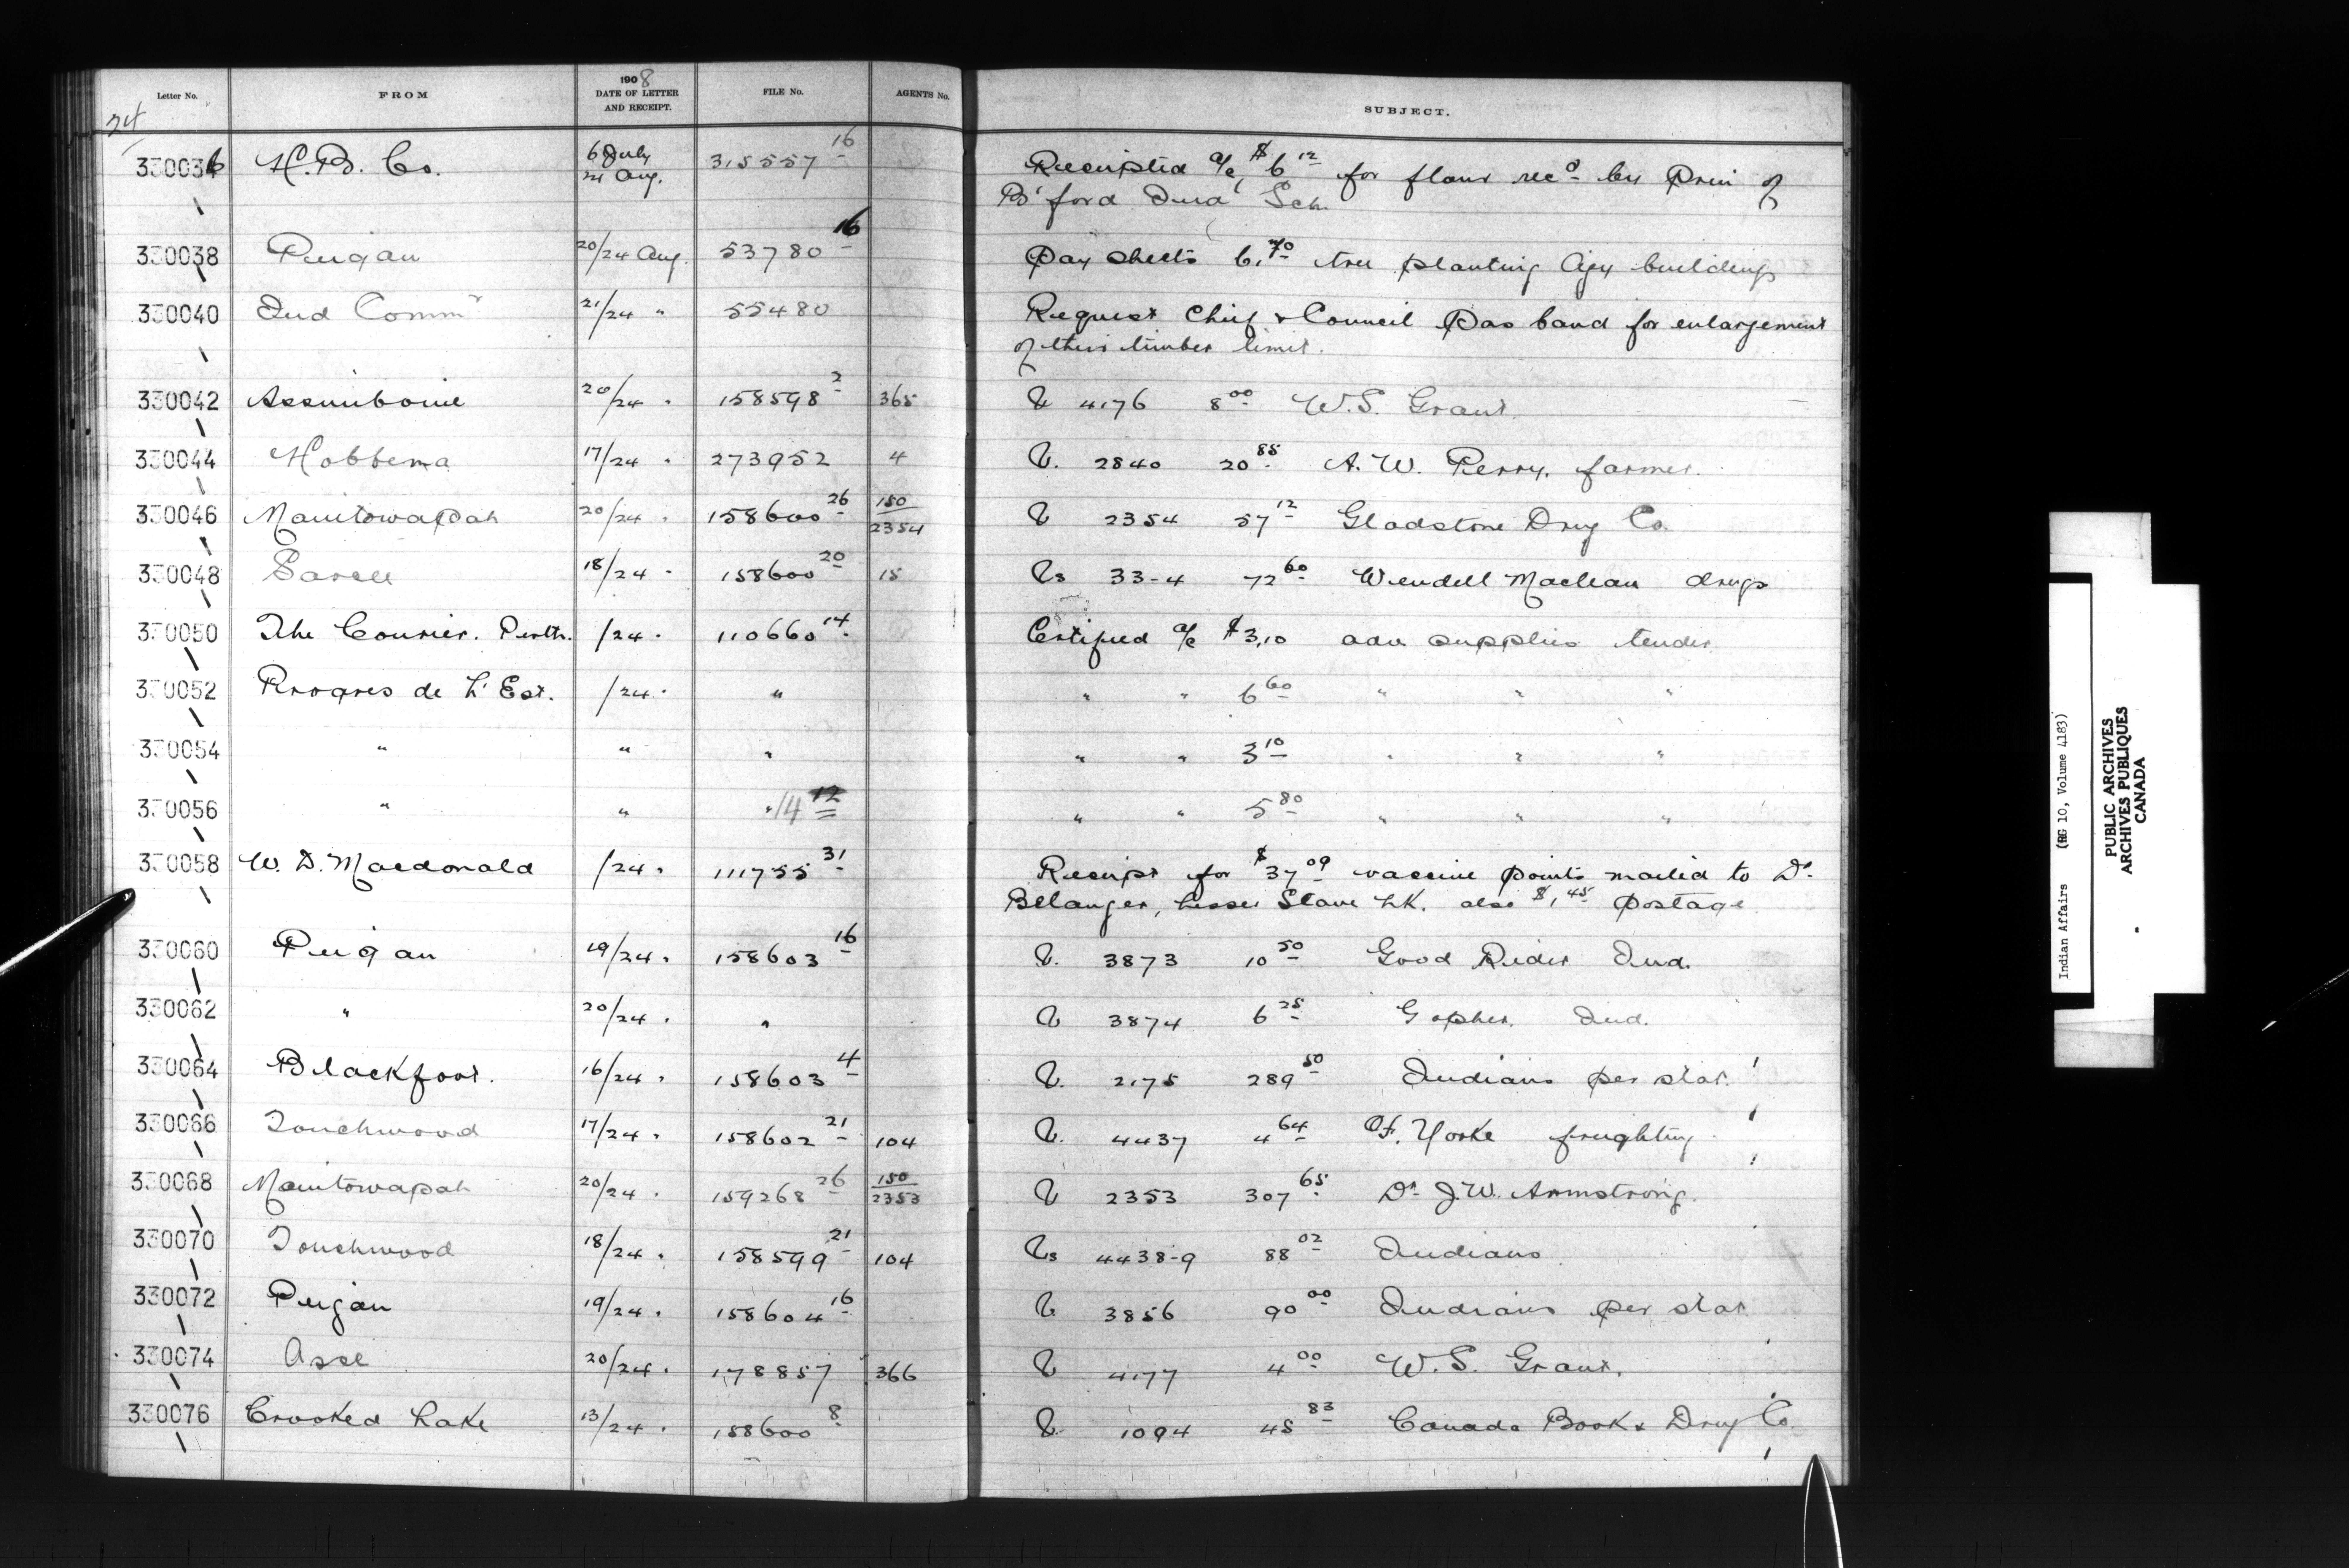 Letter No. FROM 1908 DATE OF LETTER AND RECEIPT. FILE No. AGENTS No. SUBJECT.
24
330036 H.B. Co. 6 July 24 Aug. 315557 16 Receipted a/c $6 12 for flour recd by Prin of
B'ford Ind' Sch
330038 Peigan 20/24 Aug. 53780 16 Pay sheets 6.70 tree planting Agcy buildings
330040 Ind Commr 21/24 " 55480 Request Chief & Council Pas band for enlargement
of their timber limit.
330042 Assiniboine 20/24 " 158598 2 365 V 4176 8 00 W.S. Grant
330044 Hobbema 17/24 " 273952 4 V. 2840 20 85 A.W. Perry, farmer.
330046 Manitowapah 20/24 " 158600 26 150/2354 V 2354 57 12 Gladstone Drug Co.
330048 Sarcee 18/24 " 158600 20 15 Vs 33-4 72 60 Wendell Maclean drugs
330050 The Courier. Perth. /24 " 110660 14 Certified a/c $3.10 adv supplies tender
330052 Progres de L'Est. /24 " " " " 6 60 " " "
330054 " " " " " 3 10 " " "
330056 " " " 14 12 " " 5 80 " " "
330058 W. D. Macdonald /24 " 111755 31 Receipt for $37 09 vaccine points mailed to Dr
Belanger, Lesser Slave Lk. also $1 45 postage
330060 Peigan 19/24 " 158603 16 V. 3873 10 50 Good Rider Ind.
330062 " 20/24 " " V 3874 6 25 Gopher. Ind.
330064 Blackfoot. 16/24 " 158603 4 V. 2175 289 50 Indians per stat.
330066 Touchwood 17/24 " 158602 21 104 V. 4437 4 64 F. Yorke freighting
330068 Manitowapah 20/24 " 159268 26 150/2353 V 2353 307 65 Dr J.W. Armstrong.
330070 Touchwood 18/24 " 158599 21 104 Vs 4438-9 88 02 Indians
330072 Peigan 19/24 " 158604 16 V. 3856 90 00 Indians per stat
330074 Asse 20/24 " 178857 366 V 4177 4 00 W.S. Grant.
330076 Crooked Lake 13/24 " 158600 8 V. 1094 45 83 Canada Book & Drug Co.
Indian Affairs (RG 10, Volume 4183)
PUBLIC ARCHIVES
ARCHIVES PUBLIQUES
CANADA